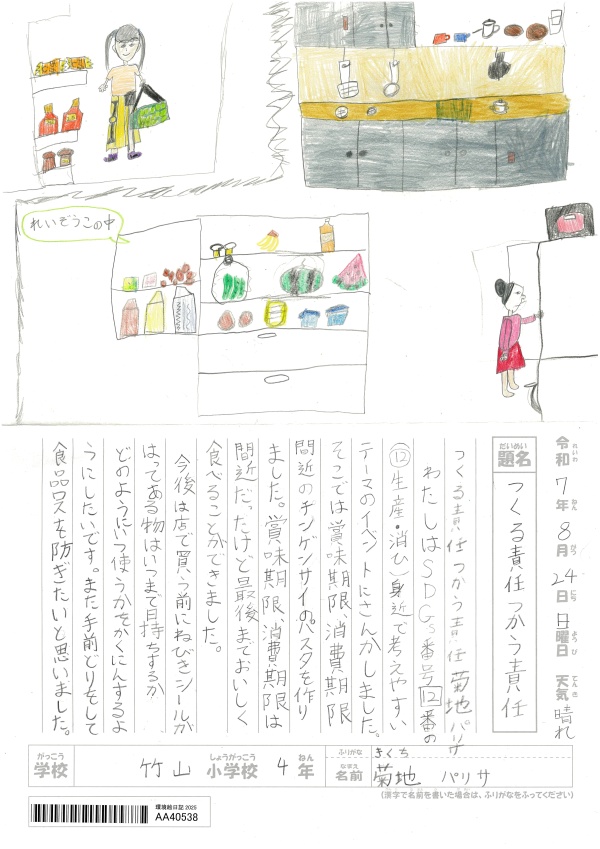 れいぞうこの中
令和7年8月24日日曜日 天気 晴れ
れいわ ねん がつ にち ようび てんき
だいめい
題名
つくる責任つかう責任
つくる責任つかう責任 菊地パリサ
わたしはSDGs番号12番の
⑫生産・消ひ)身近で考えやすい
テーマのイベントにさんかしました。
そこでは賞味期限、消費期限
間近のチンゲンサイのパスタを作り
ました。賞味期限、消費期限は
間近だったけど最後までおいしく
食べることができました。
今後は店で買う前にねびきシールが
はってある物はいつまで日持ちするか
どのようにいつ使うかをかくにんするよ
うにしたいです。また手前どりをして
食品ロスを防ぎたいと思いました。
がっこう しょうがっこう ねん
学校 竹山 小学校 4年
ふりがな きくち
なまえ
名前 菊地 パリサ
(漢字で名前を書いた場合は、ふりがなをふってください)
環境絵日記 2025
AA40538